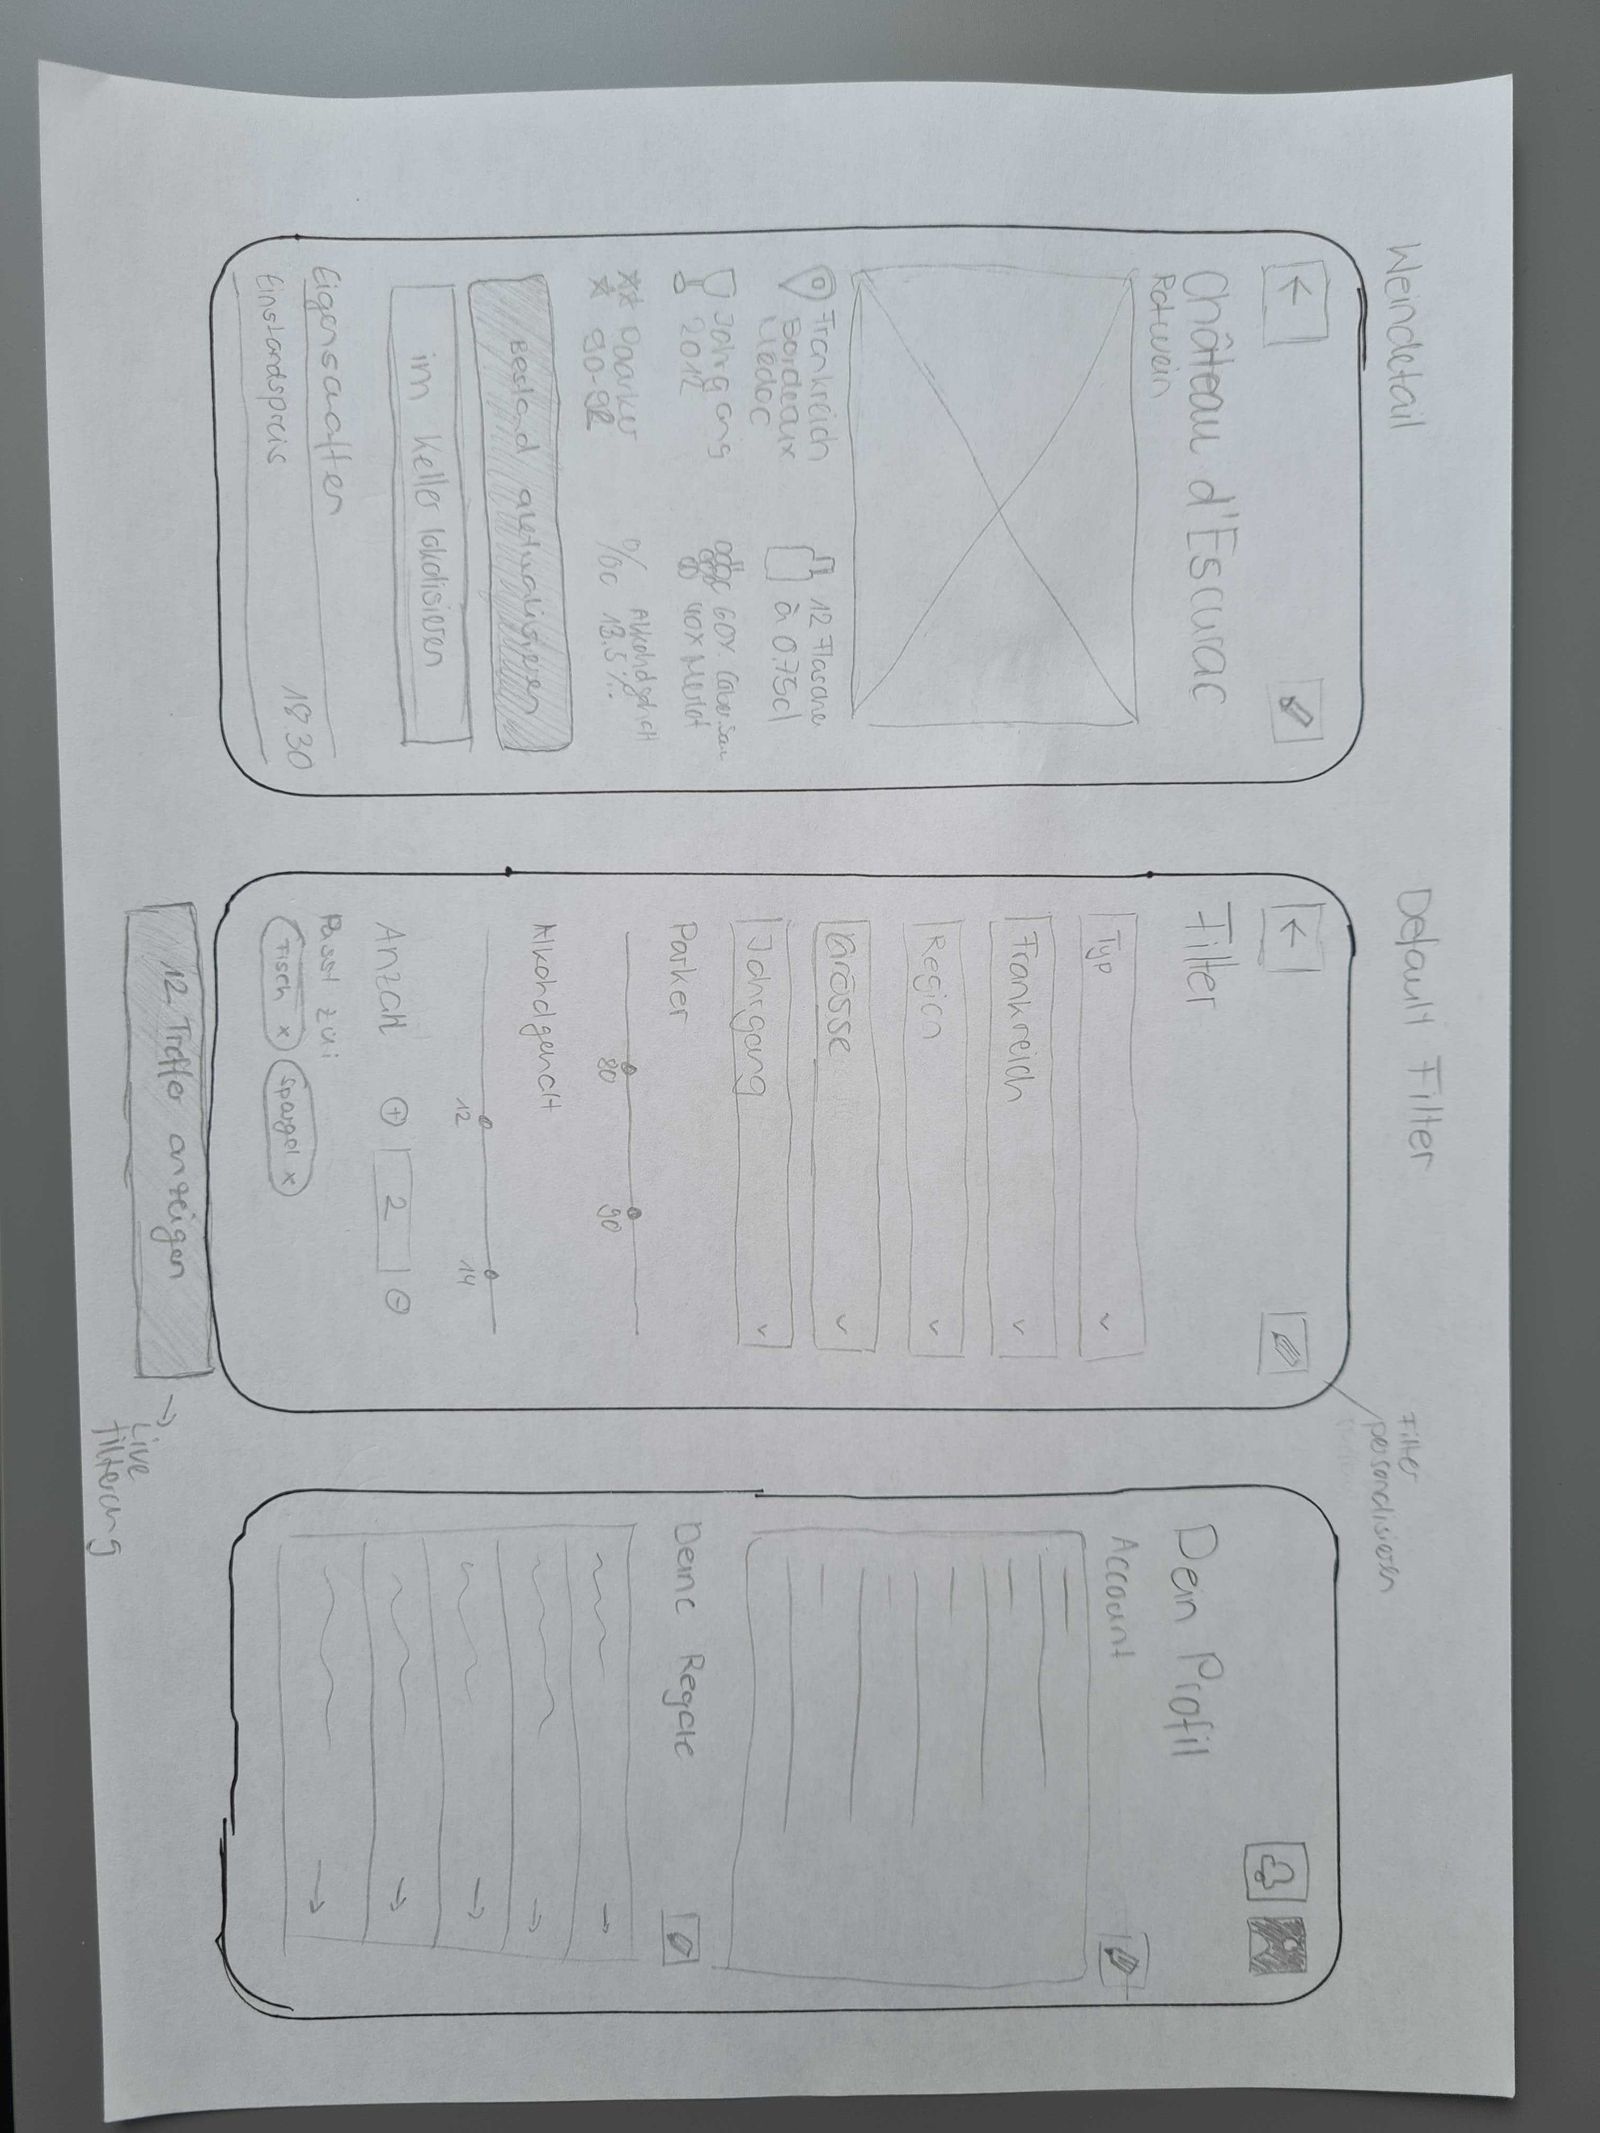 Weindetail
Château d'Escurac
Rotwein
Frankreich
Bordeaux
Médoc
12 Flasche
à 0.75cl
Jahrgang
2012
60% Caber. Sau
40% Merlot
Paarker
90-92
Alkoholgehalt
13.5%
Bestand aktualisieren
im Keller lokalisieren
Eigenschaften
Einstandspreis 18 30
Default Filter
Filter
personalisieren
Filter
Typ
Frankreich
Region
Grösse
Jahrgang
Parker
80 90
Alkoholgehalt
12 14
Anzahl + 2 -
Passt zu:
Fisch x Spargel x
12 Treffer anzeigen
→ Live
filterung
Dein Profil
Account
Deine Regale